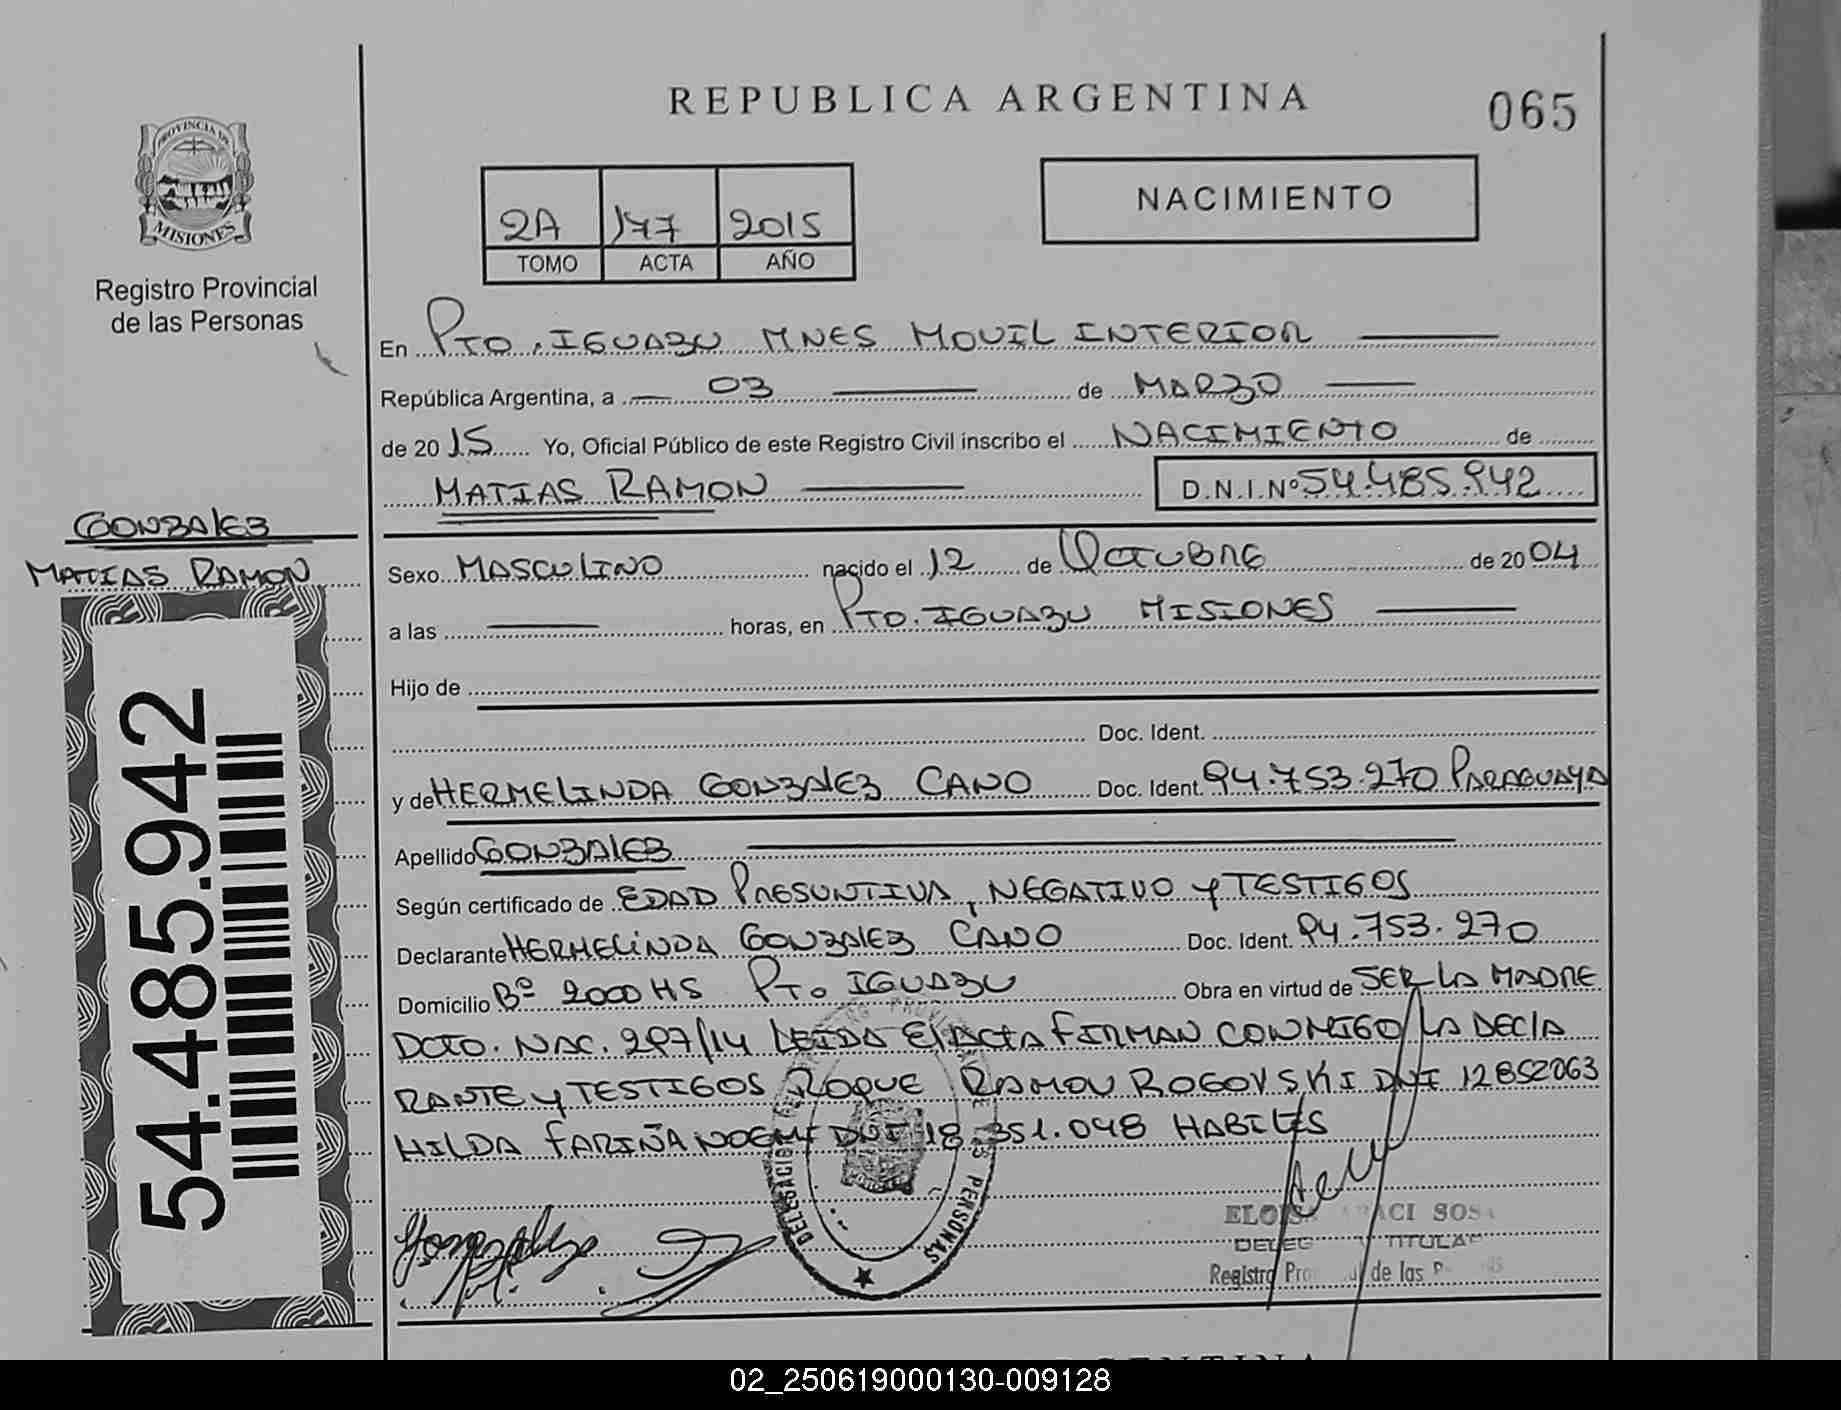 REPUBLICA ARGENTINA
065
PROVINCIA DE
MISIONES
Registro Provincial
de las Personas
2A 177 2015
TOMO ACTA AÑO
NACIMIENTO
En PTO. IGUAZU MNES MOVIL INTERIOR
República Argentina, a 03 de MARZO
de 2015 Yo, Oficial Público de este Registro Civil inscribo el NACIMIENTO de
MATIAS RAMON D.N.I.Nº 54.485.942
GONZALEZ
MATIAS RAMON
54.485.942
Sexo MASCULINO nacido el 12 de OCTUBRE de 2004
a las horas, en PTO. IGUAZU MISIONES
Hijo de
Doc. Ident.
y de HERMELINDA GONZALEZ CANO Doc. Ident. 94.753.270 PARAGUAYA
Apellido GONZALEZ
Según certificado de EDAD PRESUNTIVA, NEGATIVO y TESTIGOS
Declarante HERMELINDA GONZALEZ CANO Doc. Ident. 94.753.270
Domicilio Bº 2000 HS PTO IGUAZU Obra en virtud de SER LA MADRE
DCTO. NAC. 297/14 LEIDA El ACTA FIRMAN CONMIGO LA DECLA
RANTE y TESTIGOS ROQUE RAMON ROGOVSKI DNI 12852063
HILDA FARIÑA NOEMI DNI 18.351.048 HABILES
DELEGACION PERSONAS
ELOISA ARACI SOSA
TITULAR
Registro de las
02_250619000130-009128